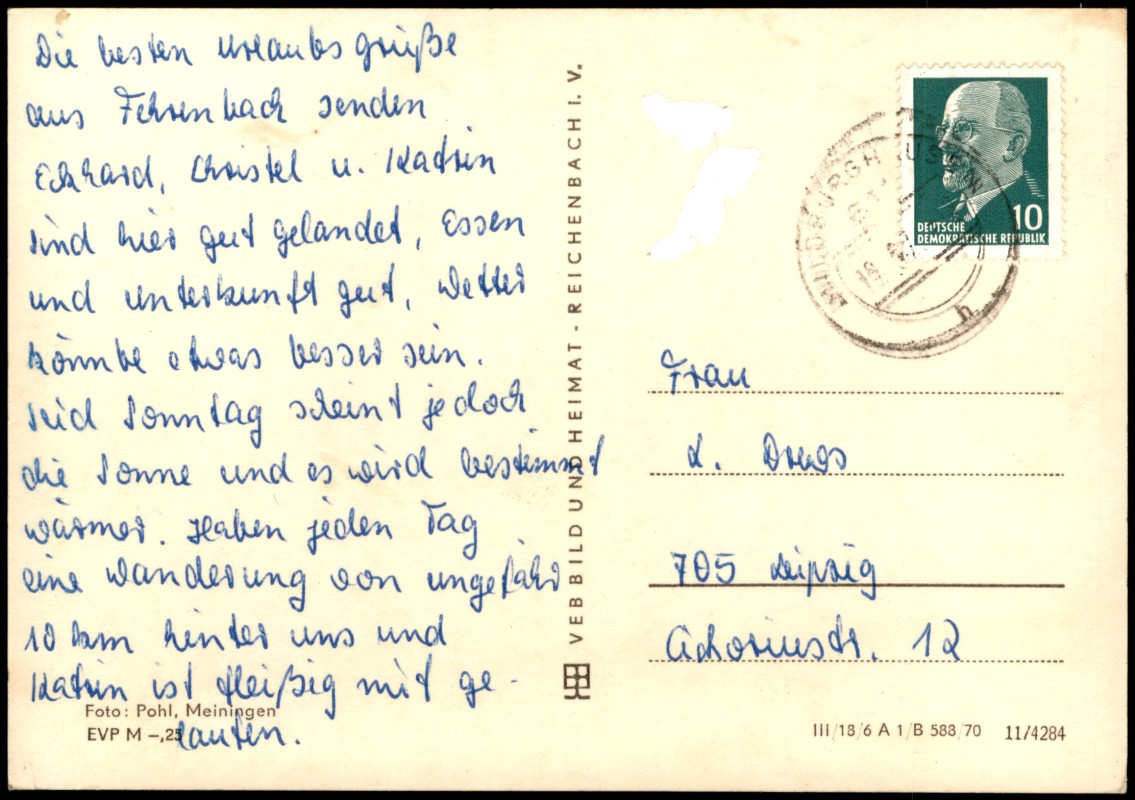 Die besten Urlaubsgrüße
aus Fehrenbach senden
Eckhard, Christel u. Katrin
sind hier gut gelandet, Essen
und Unterkunft gut, Wetter
könnte etwas besser sein.
Seid Sonntag scheint jedoch
die Sonne und es wird bestimmt
wärmer. Haben jeden Tag
eine Wanderung von ungefähr
10 km hinter uns und
Katrin ist fleißig mit ge-
laufen.
Foto: Pohl, Meiningen
EVP M –,25
VEB BILD UND HEIMAT - REICHENBACH I. V.
HILDBURGHAUSEN
h
DEUTSCHE
DEMOKRATISCHE REPUBLIK
10
Frau
L. Drews
705 Leipzig
12
III/18/6 A 1/B 588/70 11/4284